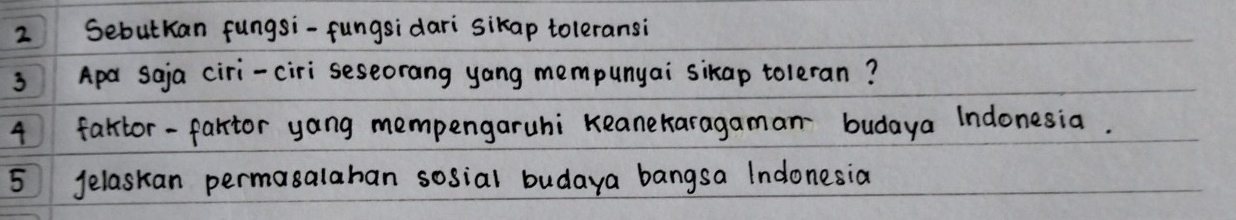 2 Sebutkan fungsi - fungsi dari sikap toleransi
3 Apa saja ciri - ciri seseorang yang mempunyai sikap toleran ?
4 faktor - faktor yang mempengaruhi keanekaragaman budaya Indonesia .
5 Jelaskan permasalahan sosial budaya bangsa Indonesia